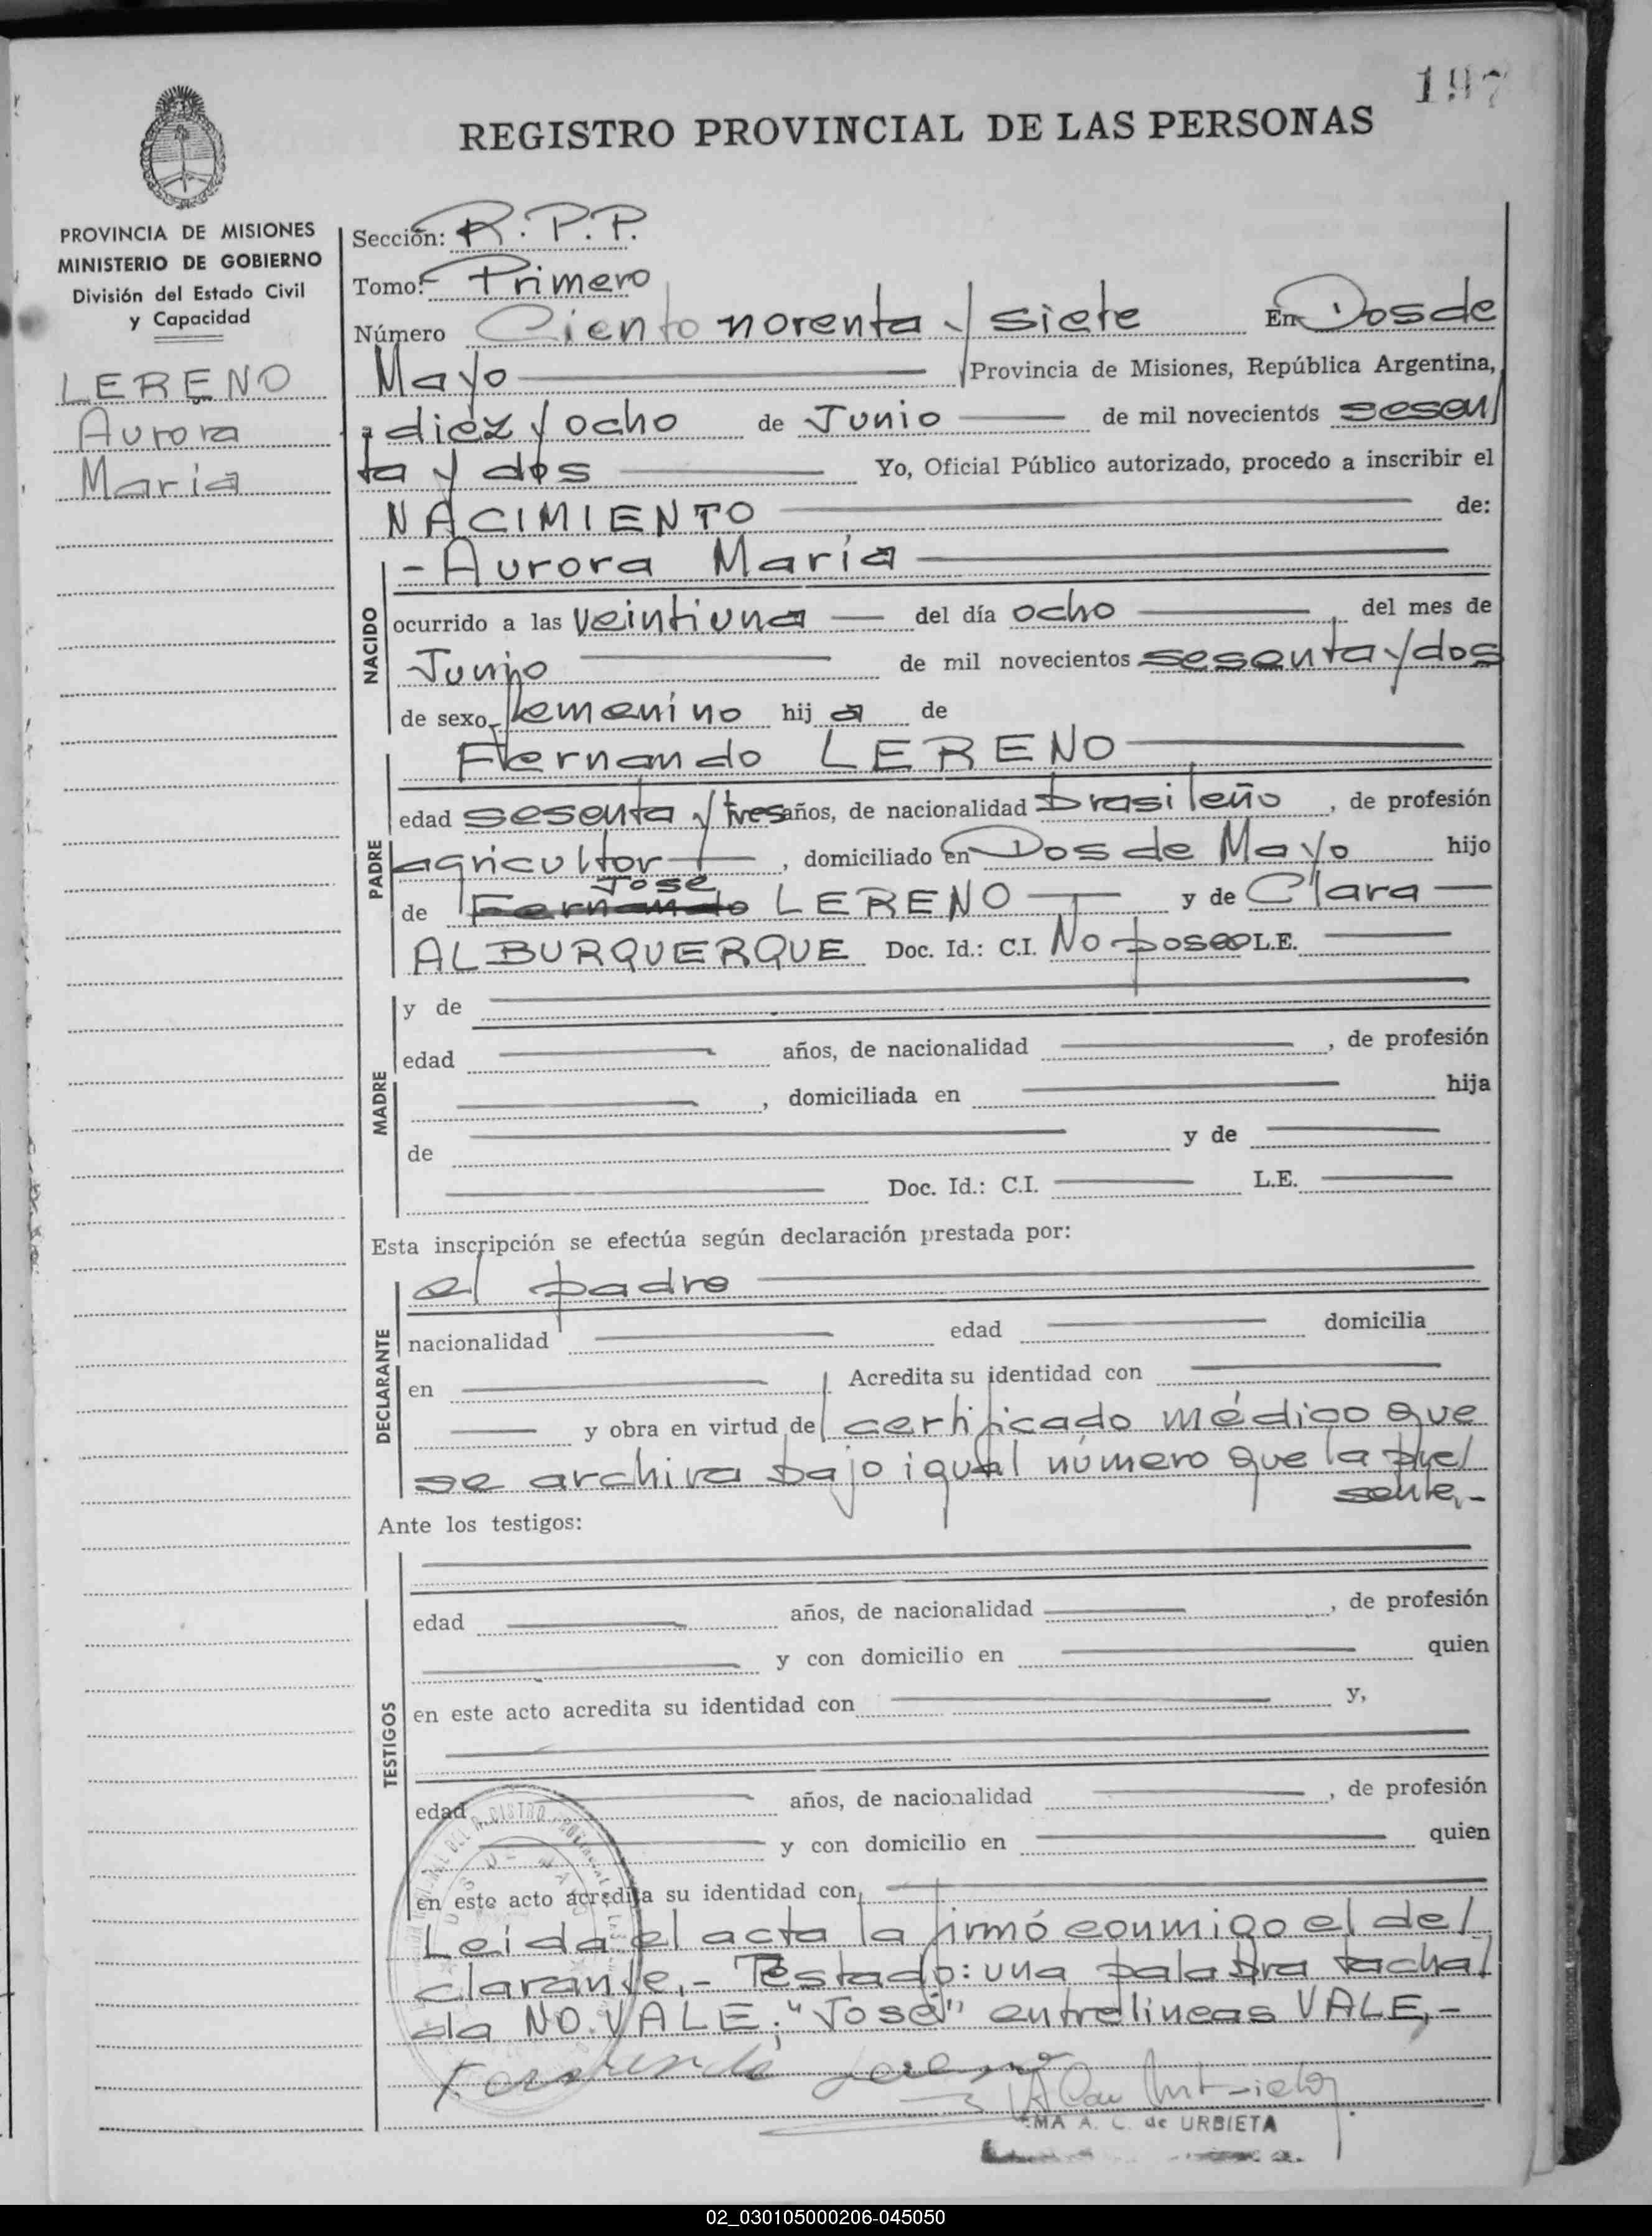 197
REGISTRO PROVINCIAL DE LAS PERSONAS
PROVINCIA DE MISIONES
MINISTERIO DE GOBIERNO
División del Estado Civil
y Capacidad
LERENO
Aurora
María
Sección: R.P.P.
Tomo: Primero
Número Ciento noventa y siete En Dos de
Mayo Provincia de Misiones, República Argentina,
a diez y ocho de Junio de mil novecientos sesen
ta y dos Yo, Oficial Público autorizado, procedo a inscribir el
NACIMIENTO de:
NACIDO
- Aurora María
ocurrido a las veintiuna del día ocho del mes de
Junio de mil novecientos sesenta y dos
de sexo femenino hij a de
PADRE
Fernando LERENO
edad sesenta y tres años, de nacionalidad brasileño, de profesión
agricultor, domiciliado en Dos de Mayo hijo
José
de Fernando LERENO y de Clara
ALBURQUERQUE Doc. Id.: C.I. No posee L.E.
MADRE
y de
edad años, de nacionalidad , de profesión
, domiciliada en hija
de y de
Doc. Id.: C.I. L.E.
Esta inscripción se efectúa según declaración prestada por:
DECLARANTE
el padre
nacionalidad edad domicilia
en Acredita su identidad con
y obra en virtud de certificado médico que
se archiva bajo igual número que la pre
sente.-
Ante los testigos:
TESTIGOS
edad años, de nacionalidad , de profesión
y con domicilio en quien
en este acto acredita su identidad con y,
edad años, de nacionalidad , de profesión
y con domicilio en quien
en este acto acredita su identidad con
Leida el acta la firmó conmigo el de
clarante.- Testado: una palabra tacha
da NO VALE; "José" entrelineas VALE.-
Fernando Lereno
A. C. de URBIETA
02_030105000206-045050